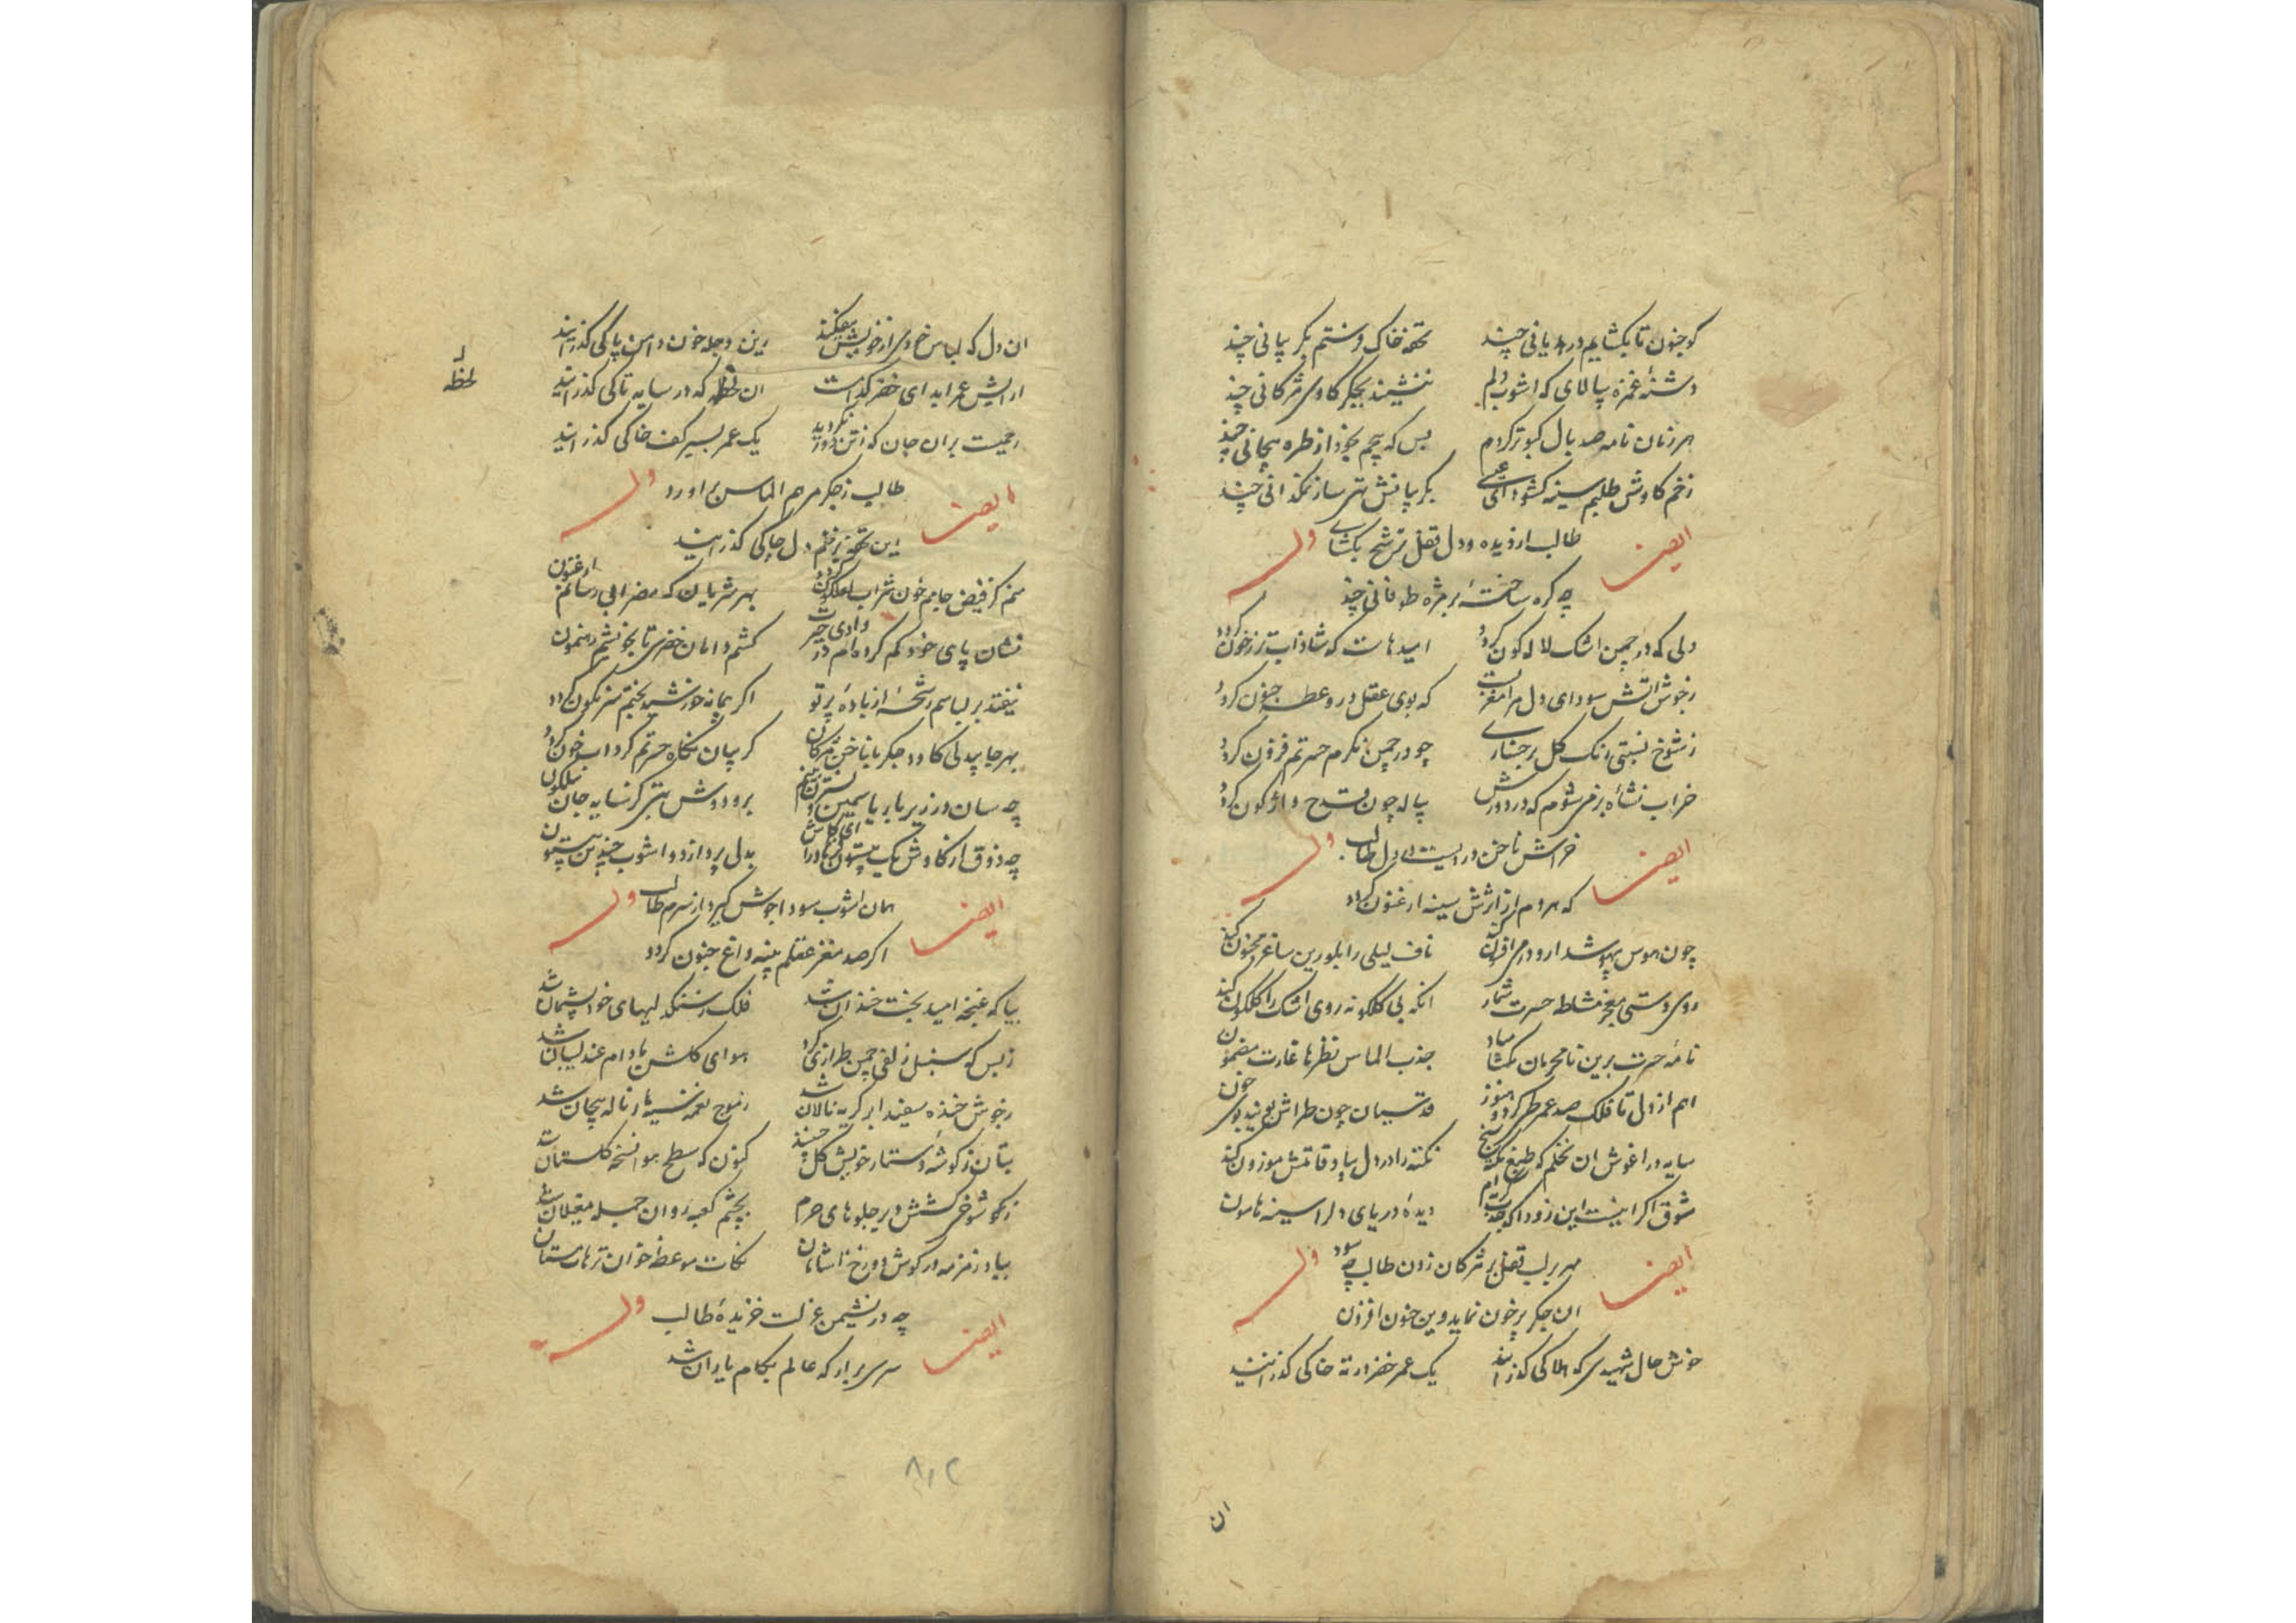 کو جنون تا بکشایم در بیابانی چند تحفهٔ خاک وستم بکریبانی چند
دشنهٔ غمزه بپالای که اشوب دلم ننشیند بجکر کاوی مژکانی چند
هر زمان نامه صد بال کبوتر کردم بس که پیچم بخود از طره پیچانی چند
زخم کاوش طلبم سینه کشودای عیسی بکریبانش تهی ساز نمکدانی چند
ایضا
طالب از دیده و دل قفل ترشح بکشای
وله
چه کره ساختهٔ بر مژه طوفانی چند
دلی که در چمن اشک لاله کون کردد امیدهاست که شاداب تر ز خون کردد
ز جوش اتش سودای دل مرا مغزیست که بوی عقل در و عطسهٔ جنون کردد
ز شوخ نسبتی رنک کل برخساری چو در چمن نکرم حسرتم فزون کردد
خراب نشاهٔ بزمی شوم که در دورش پیاله چون قدح واژکون کردد
ایضا
خراش ناخن دردیست در دل طالب
وله
که هر دم از اثرش سینه ارغنون کردد
چون هوس بیهوشدارو در می افزون کند ناف لیلی را بلورین ساغر مجنون کند
روی دستی میخور مشاطه حسرت شمار انکه بی کلکونه روی اشک را کلکون کند
نامهٔ حسرت برین نامحرمان مکشا مباد جذب الماس نظرها غارت مضمون
اهم از دل تا فلک صد عمر طی کرد و هنوز قدسیان چون طراش بوی خون
سایه در اغوش ان نخلم که طبع نکته سنج نکته را در دل بیاد قامتش موزون کند
شوق اکر اینست این زودا که جذب کریه ام دیدهٔ دریای دل را سینه هامون
ایضا
مهر بر لب قفل بر مژکان زدن طالب چه سود
وله
ان جکر پرخون نماید وین جنون افزون
خوش حال شهیدی که هلاکی کذرانید یک عمر خضر در ته خاکی کذرانید
ان
ان دل که لباس خودی از خویش بیفکند زین دجله خون دامن پاکی کذرانید
ارایش عمر ابد ای خضر کذشت ان لحظه که در سایه تاکی کذرانید
لحظه
رحمیت بران جان که از تن دور نکردید یک عمر بسیر کف خاکی کذرانید
ایضا
طالب ز جکر مرهم الماس براورد
وله
این تحفه بزخم دل چاکی کذرانید
منم کز فیض جامم خون شراب لعلکون کردد بهر شریان که مضرابی رسانم ارغنون
نشان پای خود کم کرده ام در وادی حیرت کشم دامان خضری تا بخونشم رهنمون
نیفتد بر لباسم رشحهٔ از بادهٔ پرتو اکر پیمانه خورشید بختم سرنکون کردد
بهر جا بیدلی کاود جکر با ناخن مژکان کریبان نکاه حسرتم کرداب خون کردد
چه سان در زیر بار یاسمین و نسترن بینم برو دوشش تنی کز سایه جان نیلکون
چه ذوق از کاوش یک بیستون فرهاد را ای کاش بدل پردازد و اشوب چندین بیستون
ایضا
همان اشوب سودا جوش کیرد از سرم طالب
وله
اکر صد مغز عقلم پنبه داغ جنون کردد
بیا که غنچه امید بخت خندان شد فلک ز سنکدلیهای خود پشیمان شد
ز بس که سنبل زلفی چمن طرازی کرد هوای کلشن ما دام عندلیبان شد
ز جوش خنده سفید ابر کریه نالان شد ز موج نغمه نسیم ها ز ناله پیچان شد
بتان ز کوشهٔ دستار خویش کل چینند کنون که سطح هوا نسخه کلستان
ز کوشوخ کششی در جلوهای حرم بچشم کعبه روان جمله مغیلان
بیاد زمزمه در کوش دوزخ اشامان نکات موعظه خوان ترهات مستان
ایضا
چه در نشیمن عزلت خزیدهٔ طالب
وله
سری برار که عالم بکام یاران شد
۸۱۲